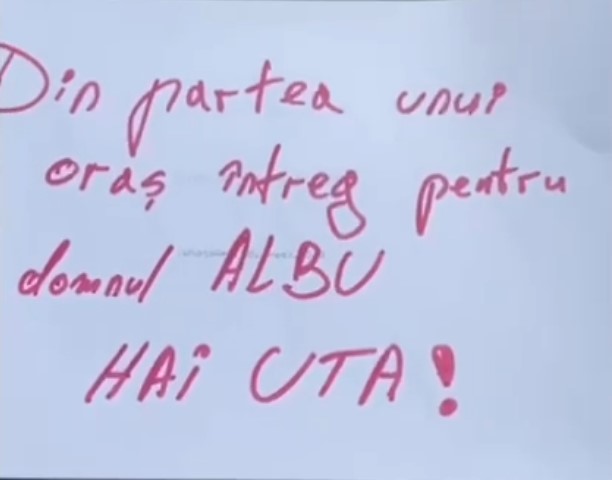 Din partea unui
oraș întreg pentru
domnul ALBU
HAi UTA!